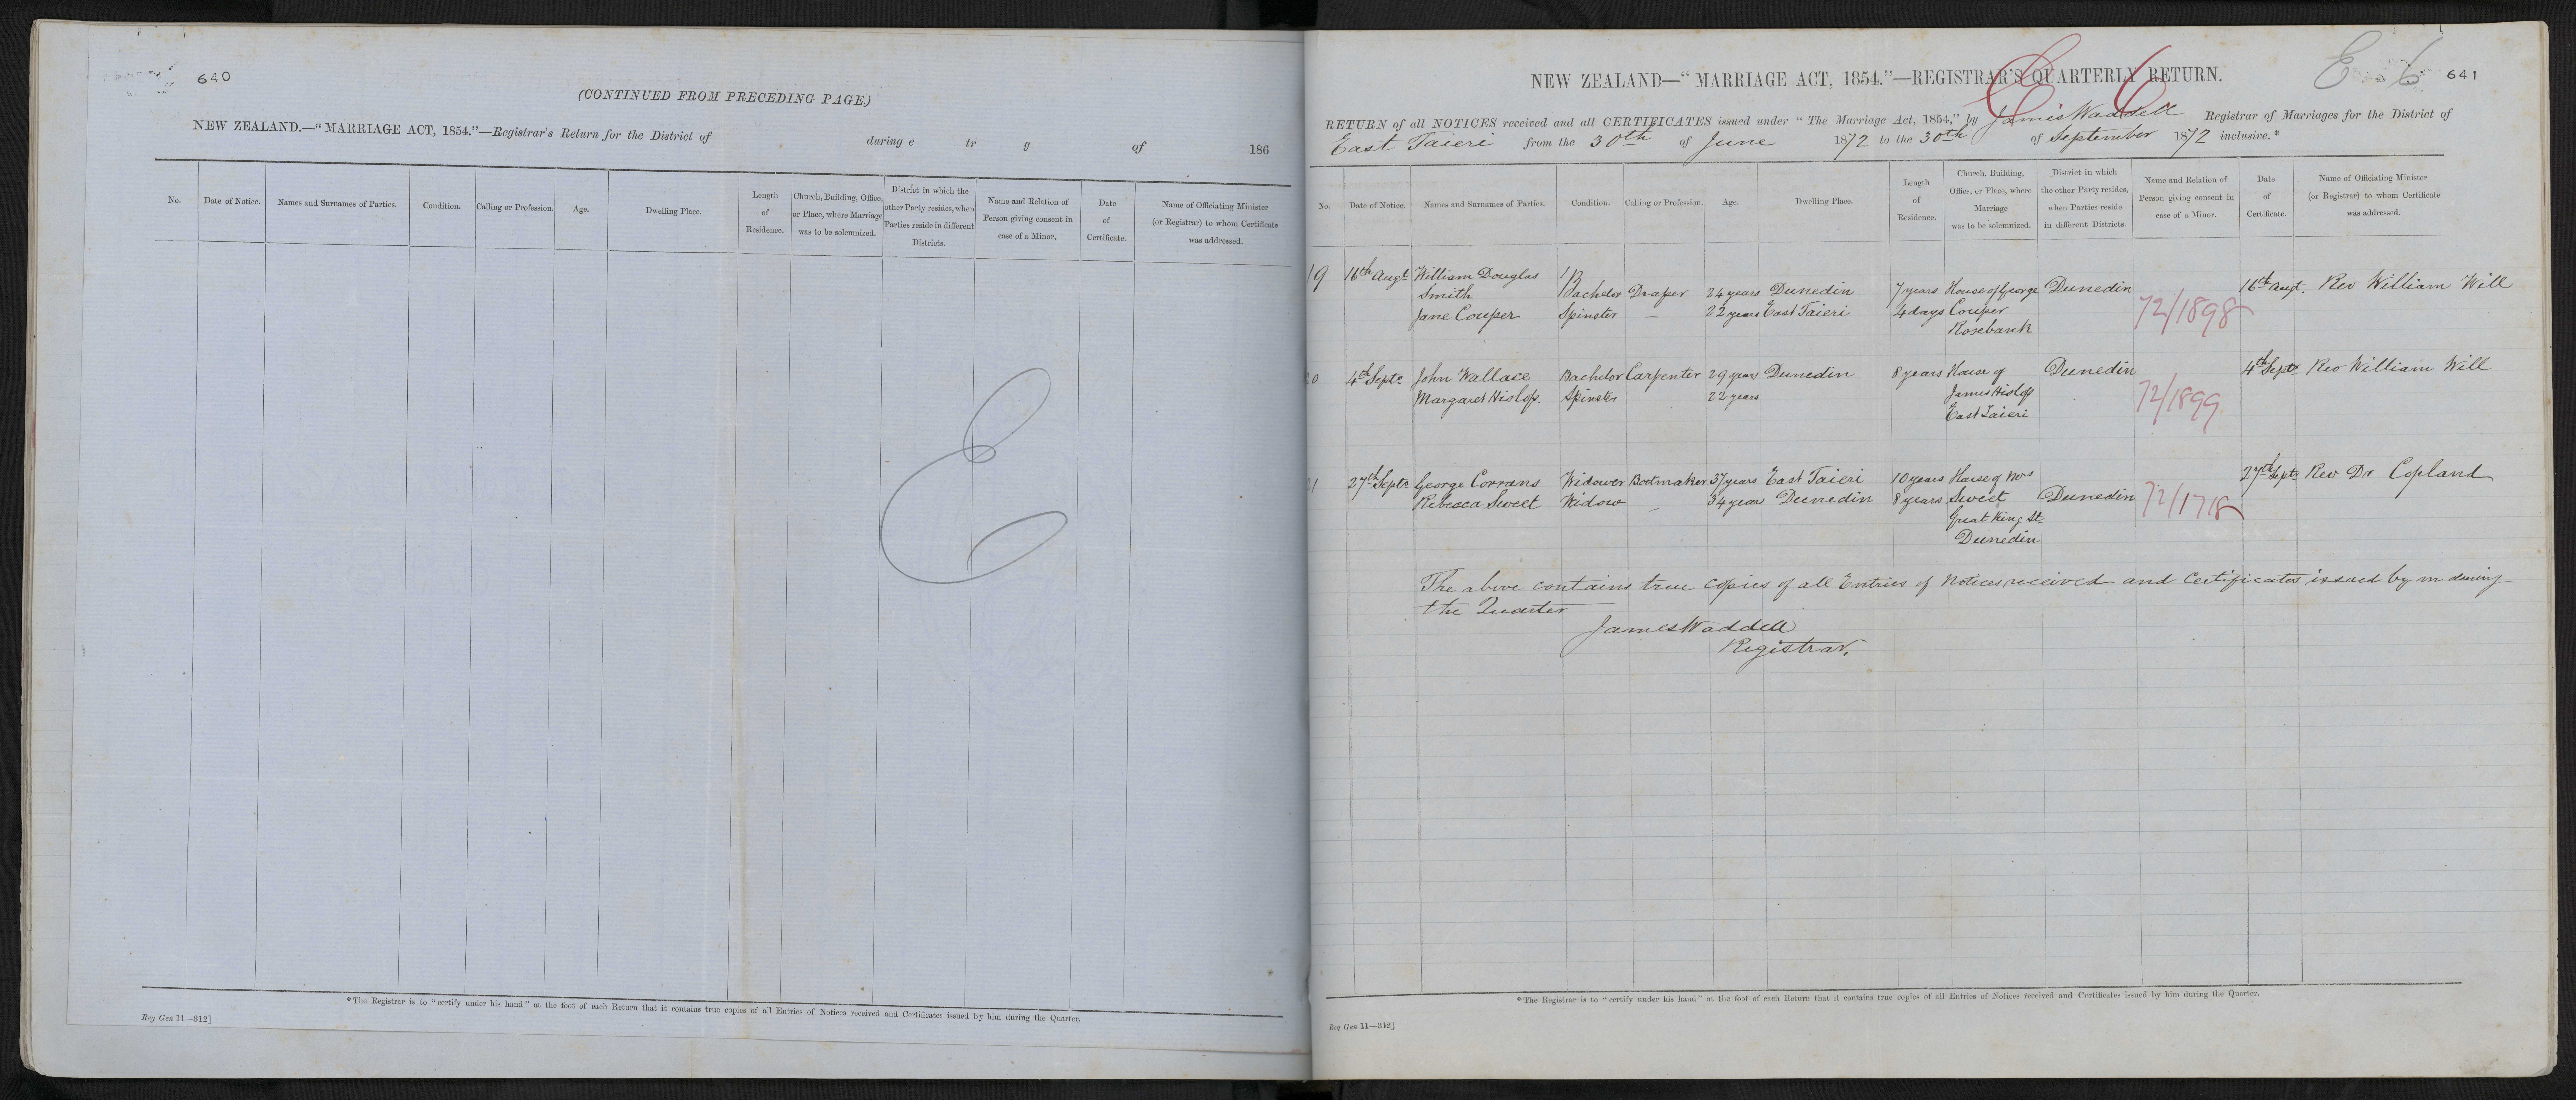 640
(CONTINUED FROM PRECEDING PAGE.)
NEW ZEALAND.—“MARRIAGE ACT, 1854.”—Registrar's Return for the District of during e tr g of 186
No. Date of Notice. Names and Surnames of Parties. Condition. Calling or Profession. Age. Dwelling Place. Length of Residence. Church, Building, Office, or Place, where Marriage was to be solemnized. District in which the other Party resides, when Parties reside in different Districts. Name and Relation of Person giving consent in case of a Minor. Date of Certificate. Name of Officiating Minister (or Registrar) to whom Certificate was addressed.
E
*The Registrar is to “certify under his hand” at the foot of each Return that it contains true copies of all Entries of Notices received and Certificates issued by him during the Quarter.
Reg Gen 11—312]
E 6 641
NEW ZEALAND—“MARRIAGE ACT, 1854.”—REGISTRAR'S QUARTERLY RETURN.
RETURN of all NOTICES received and all CERTIFICATES issued under “The Marriage Act, 1854,” by James Waddell Registrar of Marriages for the District of
East Taieri from the 30th of June 1872 to the 30th of September 1872 inclusive.*
No. Date of Notice. Names and Surnames of Parties. Condition. Calling or Profession. Age. Dwelling Place. Length of Residence. Church, Building, Office, or Place, where Marriage was to be solemnized. District in which the other Party resides, when Parties reside in different Districts. Name and Relation of Person giving consent in case of a Minor. Date of Certificate. Name of Officiating Minister (or Registrar) to whom Certificate was addressed.
19 16th Augt William Douglas
Smith Bachelor Draper 24 years Dunedin 7 years House of George Dunedin 16th Augt. Rev William Will
Jane Couper Spinster — 22 years East Taieri 4 days Couper 72/1898
Rosebank
20 4th Septr John Wallace Bachelor Carpenter 29 years Dunedin 8 years House of Dunedin 4th Septr Rev William Will
Margaret Hislop. Spinster 22 years James Hislop 72/1899
East Taieri
21 27th Septr George Corrans Widower Bootmaker 37 years East Taieri 10 years House of Mrs 27th Septr Rev Dr Copland
Rebecca Sweet Widow — 34 years Dunedin 8 years Sweet Dunedin 72/1718
Great King St.
Dunedin
The above contains true copies of all Entries of Notices received and Certificates issued by m during
the Quarter
James Waddell
Registrar.
*The Registrar is to “certify under his hand” at the foot of each Return that it contains true copies of all Entries of Notices received and Certificates issued by him during the Quarter.
Reg Gen 11—312]